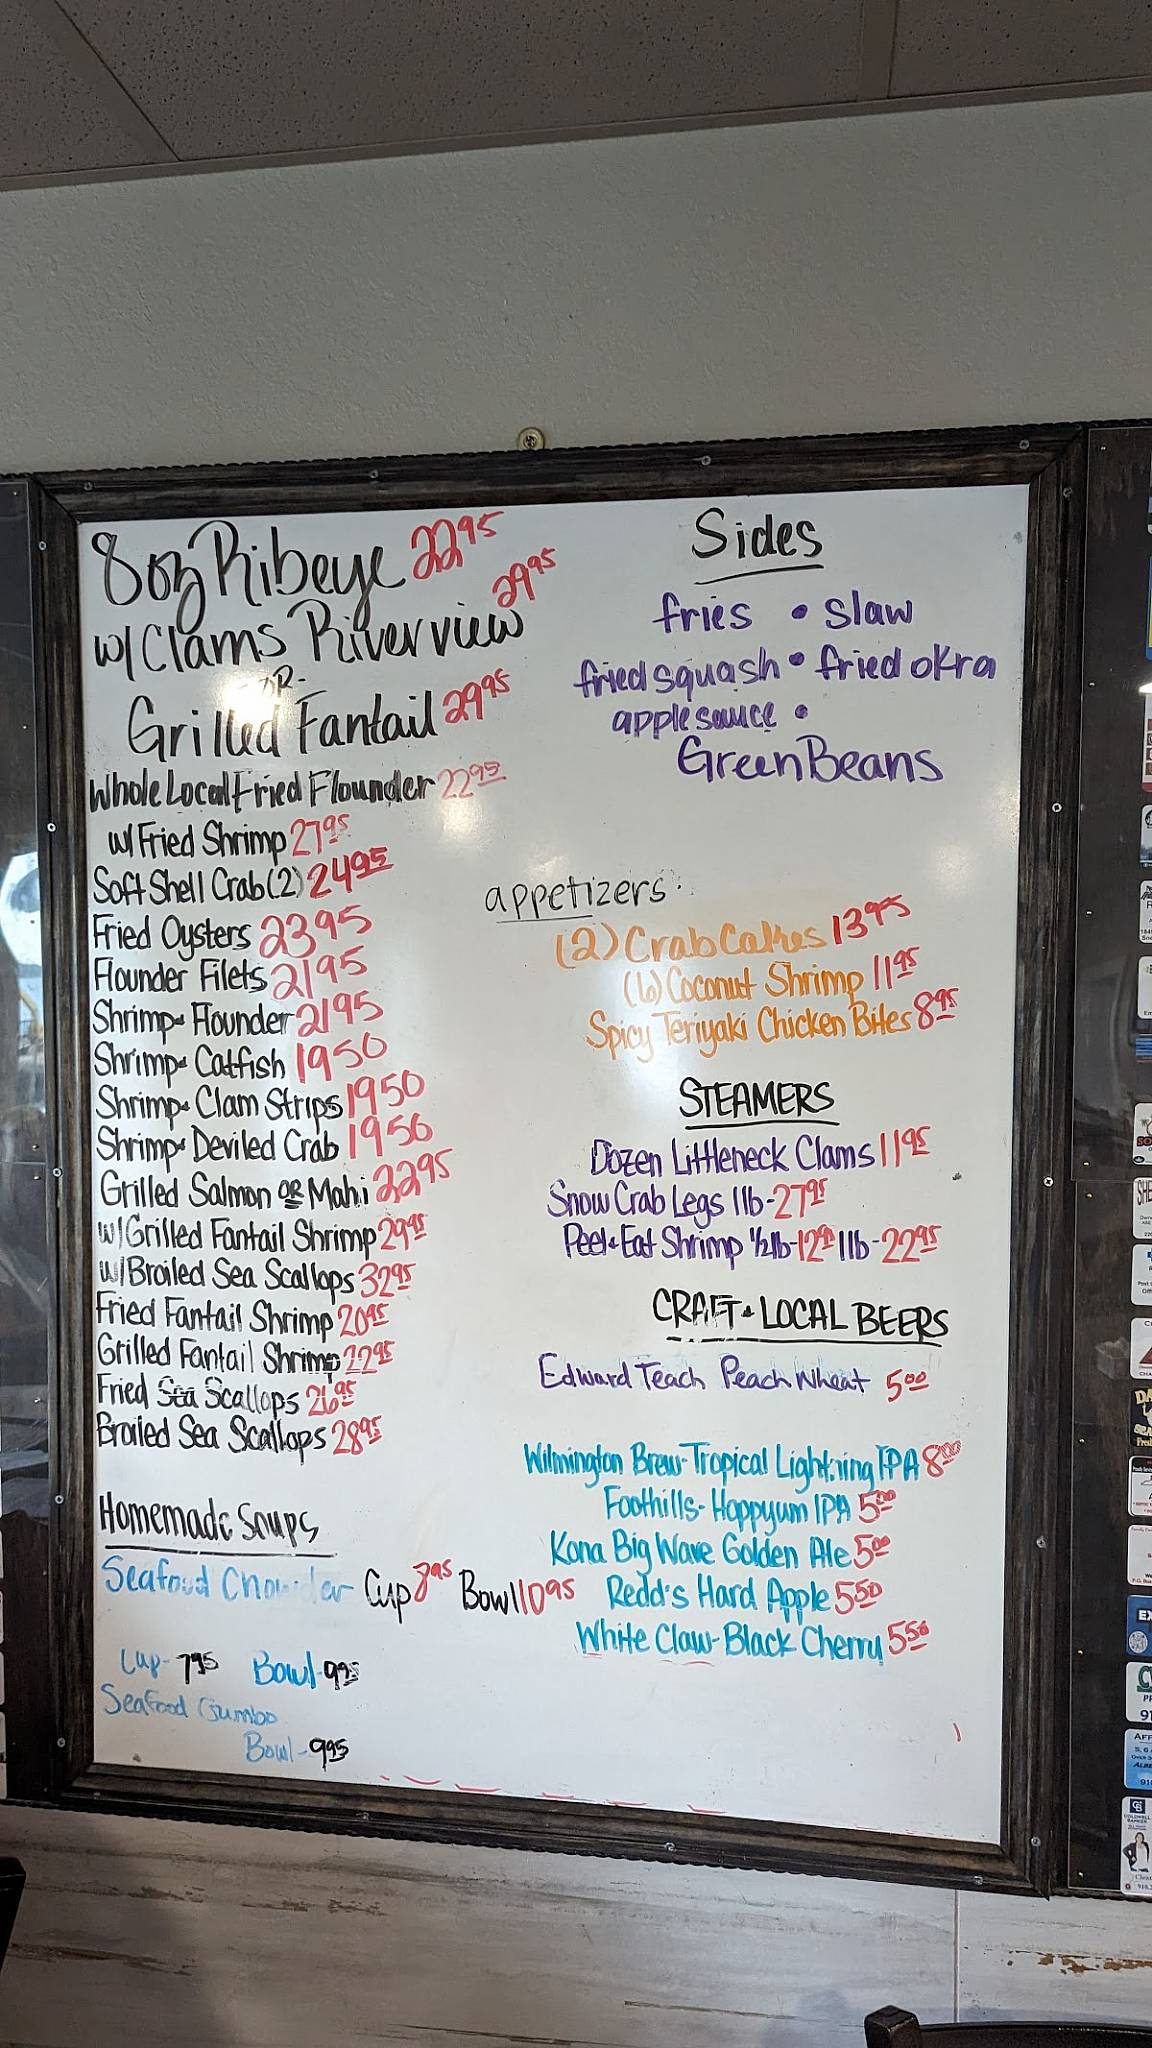 8oz Ribeye 22.95
w/ Clams Riverview 29.95
-OR-
Grilled Fantail 29.95
Whole Local Fried Flounder 22.95
w/ Fried Shrimp 27.95
Soft Shell Crab (2) 24.95
Fried Oysters 23.95
Flounder Filets 21.95
Shrimp & Flounder 21.95
Shrimp & Catfish 19.50
Shrimp & Clam Strips 19.50
Shrimp & Deviled Crab 19.50
Grilled Salmon OR Mahi 22.95
w/ Grilled Fantail Shrimp 29.95
w/ Broiled Sea Scallops 32.95
Fried Fantail Shrimp 20.95
Grilled Fantail Shrimp 22.95
Fried Sea Scallops 26.95
Broiled Sea Scallops 28.95
Homemade Soups
Seafood Chowder Cup 8.95 Bowl 10.95
Cup - 7.95 Bowl - 9.95
Seafood Gumbo
Bowl - 9.95
Sides
fries • slaw
fried squash • fried okra
applesauce •
Green Beans
appetizers
(2) Crab Cakes 13.95
(6) Coconut Shrimp 11.95
Spicy Teriyaki Chicken Bites 8.95
STEAMERS
Dozen Littleneck Clams 11.95
Snow Crab Legs 1lb - 27.95
Peel & Eat Shrimp 1/2lb - 12.95 1lb - 22.95
CRAFT & LOCAL BEERS
Edward Teach Peach Wheat 5.00
Wilmington Brew - Tropical Lightning IPA 8.00
Foothills - Hoppyum IPA 5.00
Kona Big Wave Golden Ale 5.00
Redd's Hard Apple 5.50
White Claw - Black Cherry 5.50